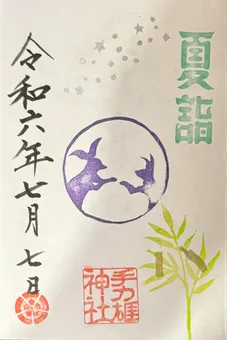 夏詣
令和六年七月七日
手力雄
神社